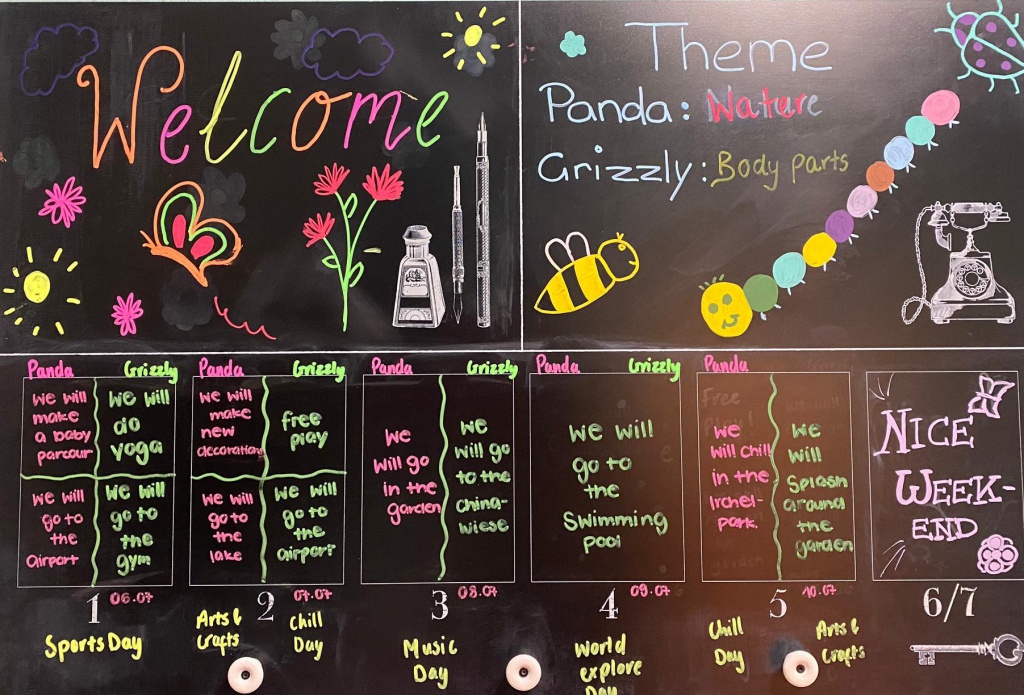 Welcome
Theme
Panda: Nature
Grizzly: Body parts
Panda Grizzly
we will
make
a baby
parcour
we will
do
yoga
we will
go to
the
airport
we will
go to
the
gym
1 06.07
Sports Day
Panda Grizzly
we will
make
new
decorations
free
play
we will
go to
the
lake
we will
go to
the
airport
2 07.07
Arts &
Crafts
Chill
Day
Panda Grizzly
we
will go
in the
garden
we
will go
to the
china-
wiese
3 08.07
Music
Day
Panda Grizzly
we will
go to
the
swimming
pool
4 09.07
World
explore
Day
Panda
we
will chill
in the
Irchel-
park.
we
will
Splash
around
the
garden
5 10.07
Chill
Day
Arts &
Crafts
NICE
WEEK-
END
6/7